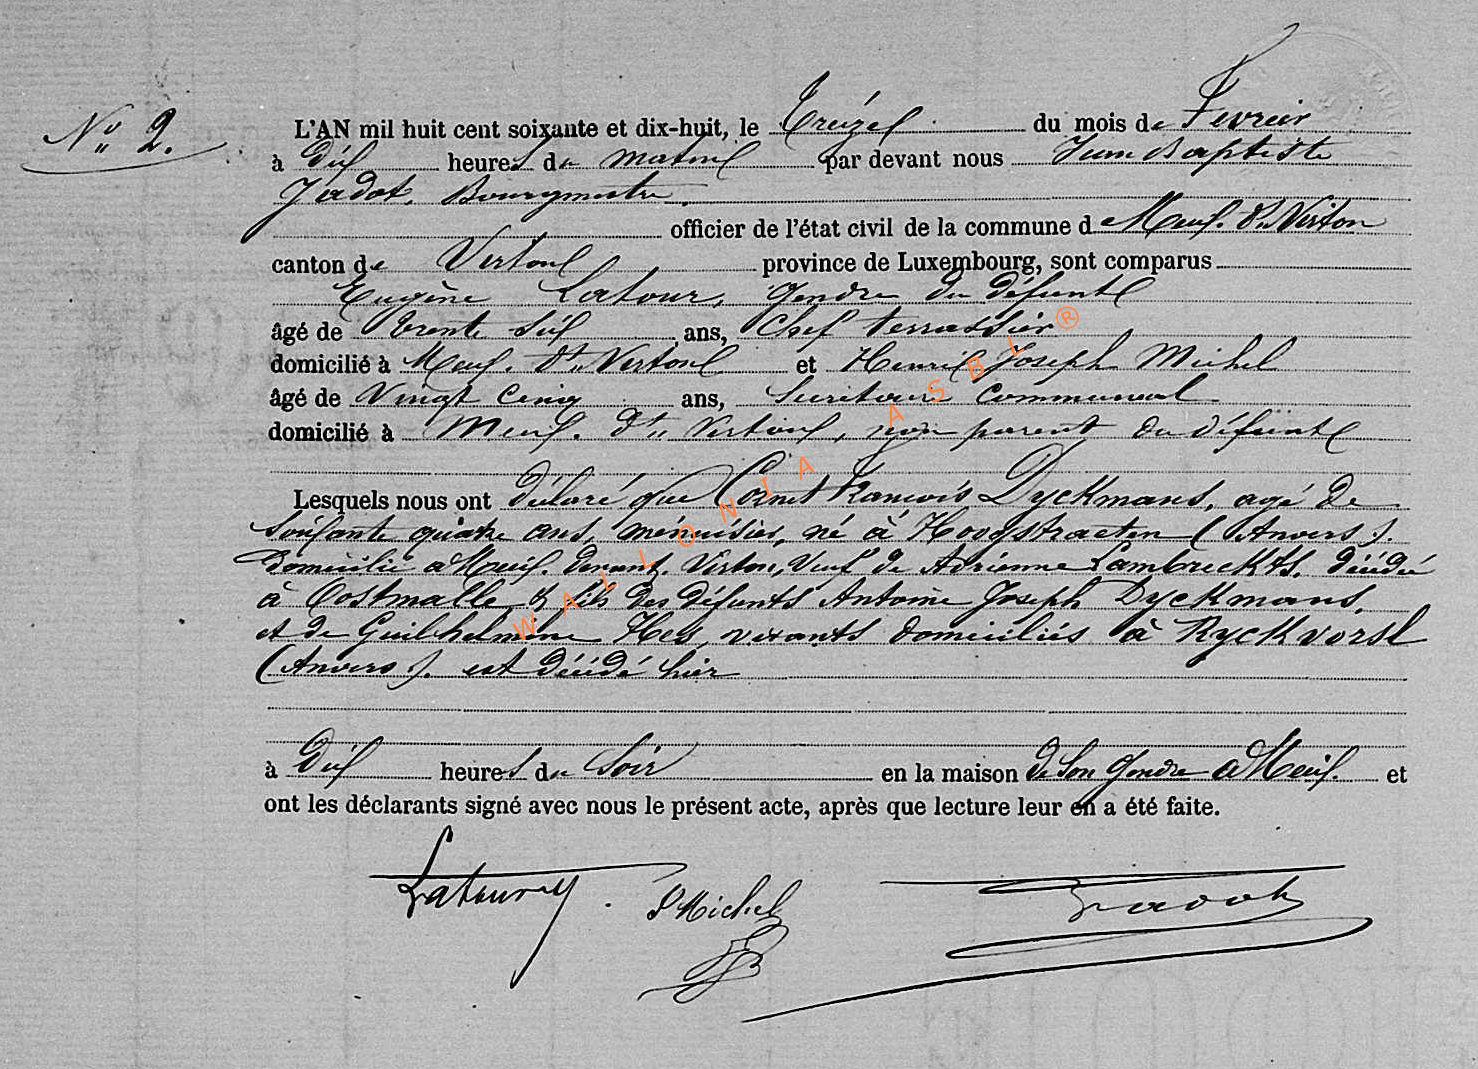 N° 2.
L'AN mil huit cent soixante et dix-huit, le Treize du mois de Fevrier
à dix heures du matin par devant nous Jean Baptiste
Jadot, Bourgmestre,
officier de l'état civil de la commune de Meix. dt. Virton
canton de Virton province de Luxembourg, sont comparus
Eugène Latour, gendre du défunt
âgé de trente six ans, Chef terrassier
domicilié à Meix. dt. Virton et Henri Joseph Michel
âgé de Vingt cinq ans, Secrétaire Communal
domicilié à Meix. dt. Virton, non parent du défunt
Lesquels nous ont déclaré que Cornet François Dyckmans, agé de
soixante quatre ans, menuisier, né à Hoogstraeten (Anvers).
domicilié à Meix. devant. Virton, veuf de Adrienne Lambreckts, décédée
à Oostmalle, & fils des défunts Antoine Joseph Dyckmans,
et de Guilhelmine Hes, vivants domiciliés à Ryckvorsel
(Anvers). est décédé hier
à dix heures du soir en la maison de son gendre à Meix. et
ont les déclarants signé avec nous le présent acte, après que lecture leur en a été faite.
Latour J Michel Jadot
WALLONIA ASBL ®